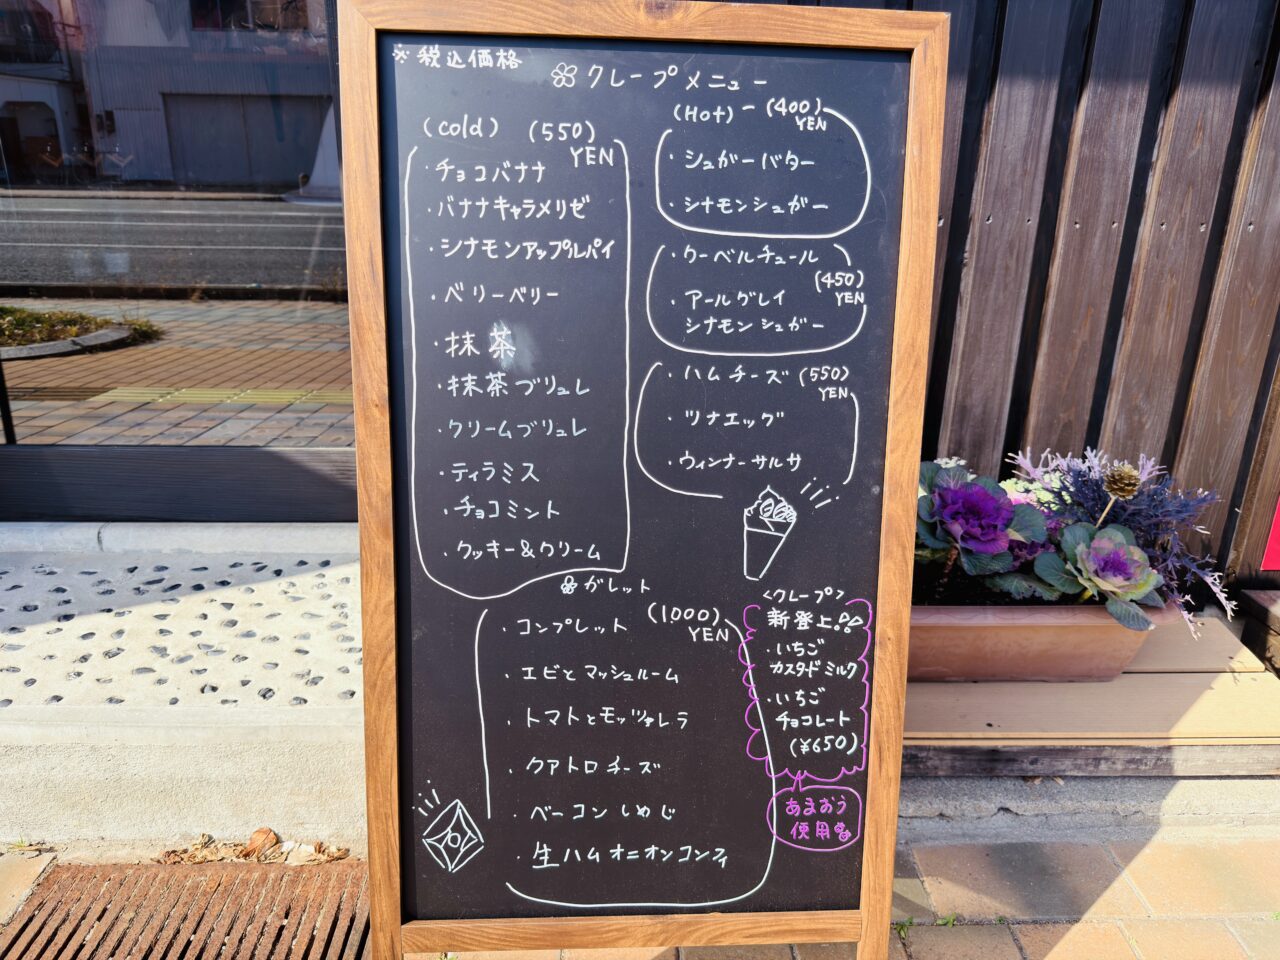 ※税込価格
クレープメニュー
(cold) (550)
YEN
・チョコバナナ
・バナナキャラメリゼ
・シナモンアップルパイ
・ベリーベリー
・抹茶
・抹茶ブリュレ
・クリームブリュレ
・ティラミス
・チョコミント
・クッキー&クリーム
(Hot) - (400)
YEN
・シュガーバター
・シナモンシュガー
・クーベルチュール
(450)
YEN
・アールグレイ
シナモンシュガー
・ハムチーズ (550)
YEN
・ツナエッグ
・ウィンナーサルサ
ガレット
(1000)
YEN
・コンプレット
・エビとマッシュルーム
・トマトとモッツァレラ
・クアトロチーズ
・ベーコンしめじ
・生ハムオニオンコンフィ
<クレープ>
新登上!!
・いちご
カスタードミルク
・いちご
チョコレート
(¥650)
あまおう
使用